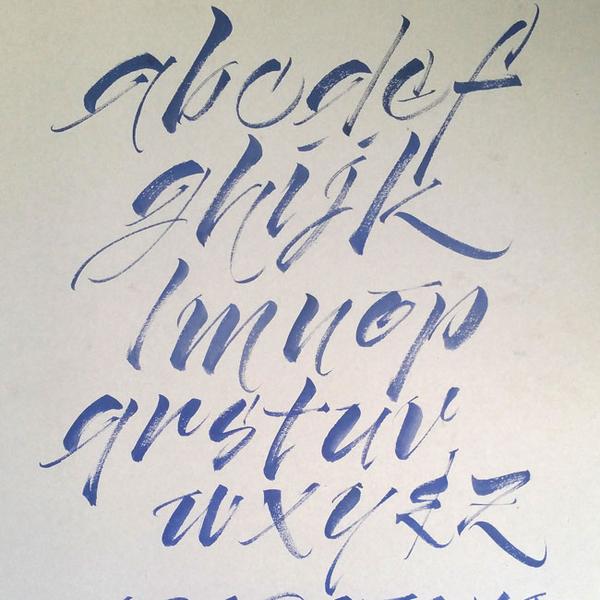 abcdef
ghijk
lmnop
qrstuv
wxy&z